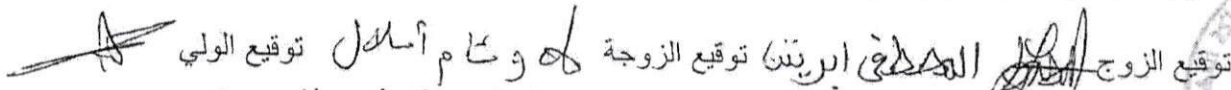 توقيع الزوج المصطفى ابريتن توقيع الزوجة وئام أملال توقيع الولي